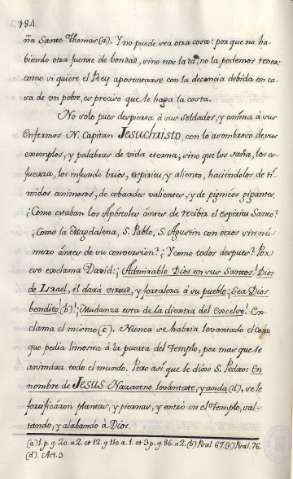 184.
ña Santo Thomas (a). Y no puede ser otra cosa: porque no ha-
biendo otra fuente de bondad, sino no la no la podemos tener:
como si quiere el Rey aposentarse con la decencia debida en ca-
sa de un pobre, es preciso que le haga la costa.
No solo pues despierta à sus soldados, y anima à sus
Enfermos N. Capitan JESUCHRISTO, con lo asombroso de sus
exemplos, y palabras de vida eterna; sino que los sana, los es-
fuerza, les infunde brios, espiritu, y aliento, haciéndolos de ti-
midos animosos, de cobardes valientes, y de pigmeos gigantes.
¿Como estaban los Apóstoles ántes de recibir el espiritu Santo?
¿Como la Magdalena, S. Pablo, S. Agustin con otros sin nú-
mero ántes de su conversion? ¿Y como despues? Por
eso exclama David: ¡Admirable Dios en sus Santos, Dios
de Israel, èl dará virtud, y fortaleza à su pueblo; sea Dios
bendito! (b) ¡Mudanza esta de la diestra del Excelso! Ex-
clama el mismo (c). Nunca se habria levantado el cojo
que pedia limosna à la puerta del Templo, por mas que le
animára todo el mundo. Pero asi que le dixo S. Pedro: En
nombre de JESUS Nazareno levántate, y anda (d), se le
fortificaron plantas, y piernas, y entró en el Templo, sal-
tando, y alabando à Dios.
(a) 1. p. q. 20. a. 2. et 12. q. 110. a. 1. et 3. p. q. 86. a. 2. (b) Psal. 67. (c) Psal. 76.
(d) Act. 3.